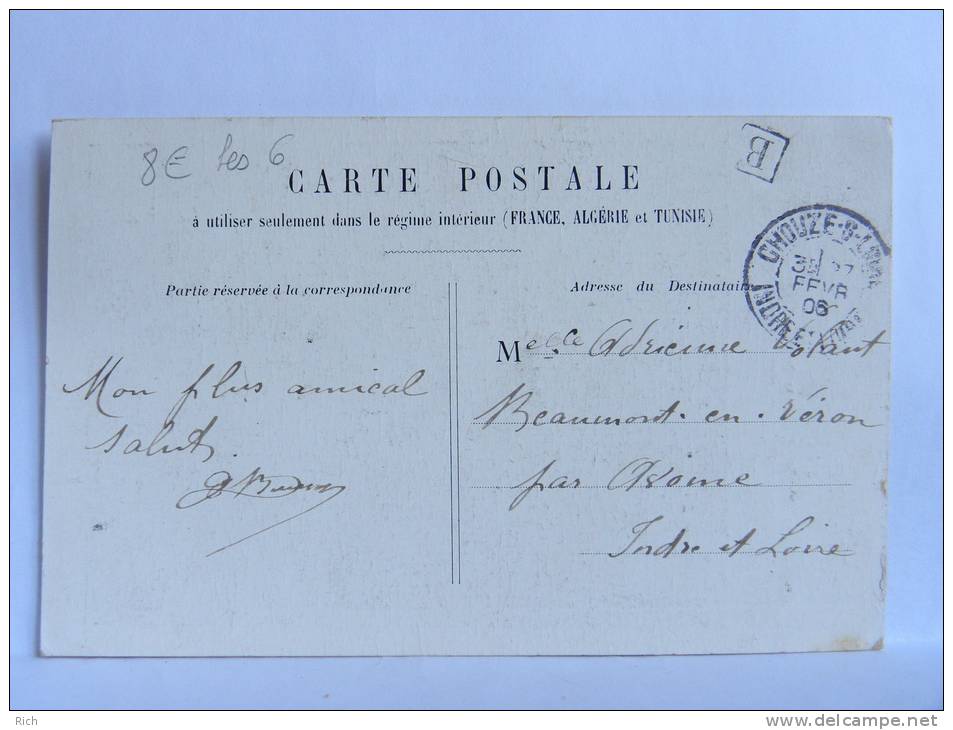 8€ les 6
B
CARTE POSTALE
à utiliser seulement dans le régime intérieur (FRANCE, ALGÉRIE et TUNISIE)
CHOUZE-S-LOIRE
27
FEVR
06
INDRE ET LOIRE
Partie réservée à la correspondance
Adresse du Destinataire
Melle Adrienne Volant
Beaumont-en-Véron
par
Indre et Loire
Mon plus amical
salut.
Rich
www.delcampe.net